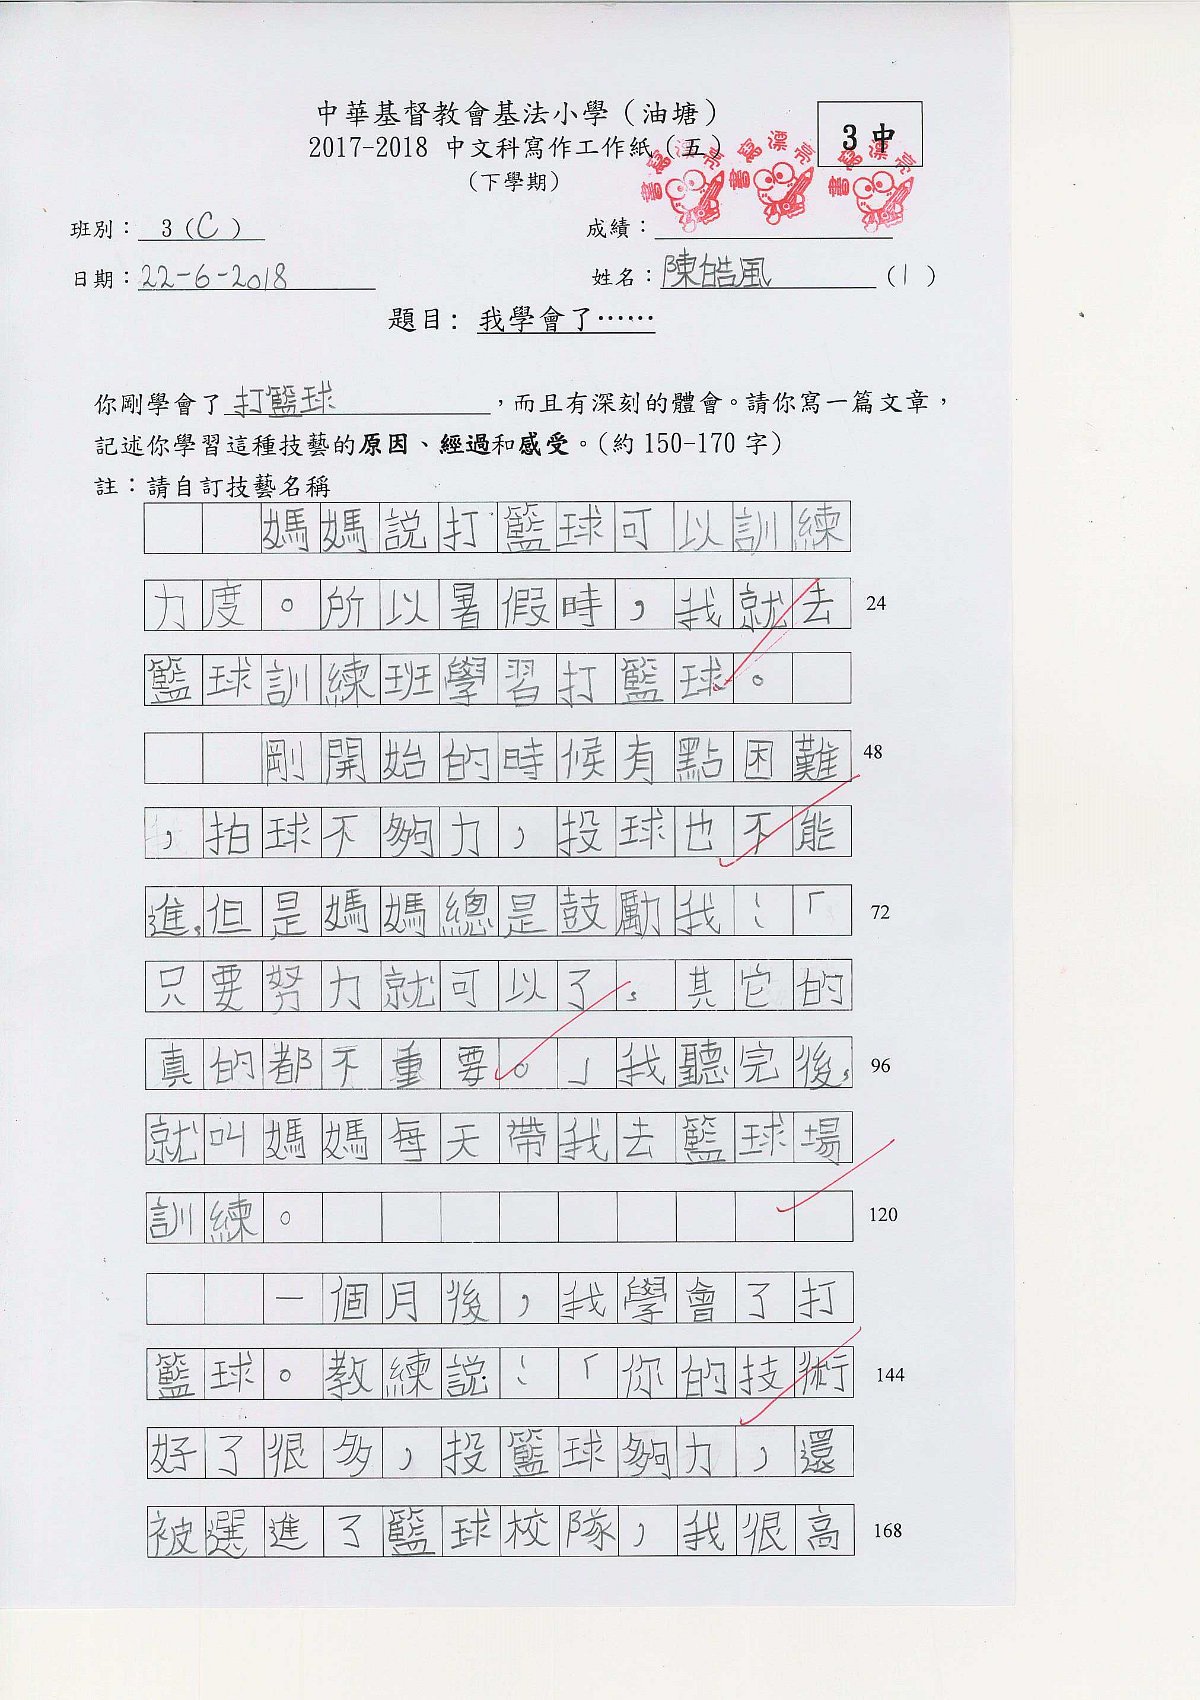 中華基督教會基法小學（油塘）
2017-2018 中文科寫作工作紙（五）
3中
（下學期）
書寫漂亮
書寫漂亮
書寫漂亮
班別：3（C）
成績：
日期：22-6-2018
姓名：陳皓風（1）
題目：我學會了⋯⋯
你剛學會了打籃球，而且有深刻的體會。請你寫一篇文章，
記述你學習這種技藝的原因、經過和感受。（約150-170字）
註：請自訂技藝名稱
媽媽說打籃球可以訓練
力度。所以暑假時，我就去 24
籃球訓練班學習打籃球。
剛開始的時候有點困難 48
，拍球不夠力，投球也不能
進，但是媽媽總是鼓勵我：「 72
只要努力就可以了，其它的
真的都不重要。」我聽完後， 96
就叫媽媽每天帶我去籃球場
訓練。 120
一個月後，我學會了打
籃球。教練說：「你的技術 144
好了很多，投籃球夠力，還
被選進了籃球校隊，我很高 168